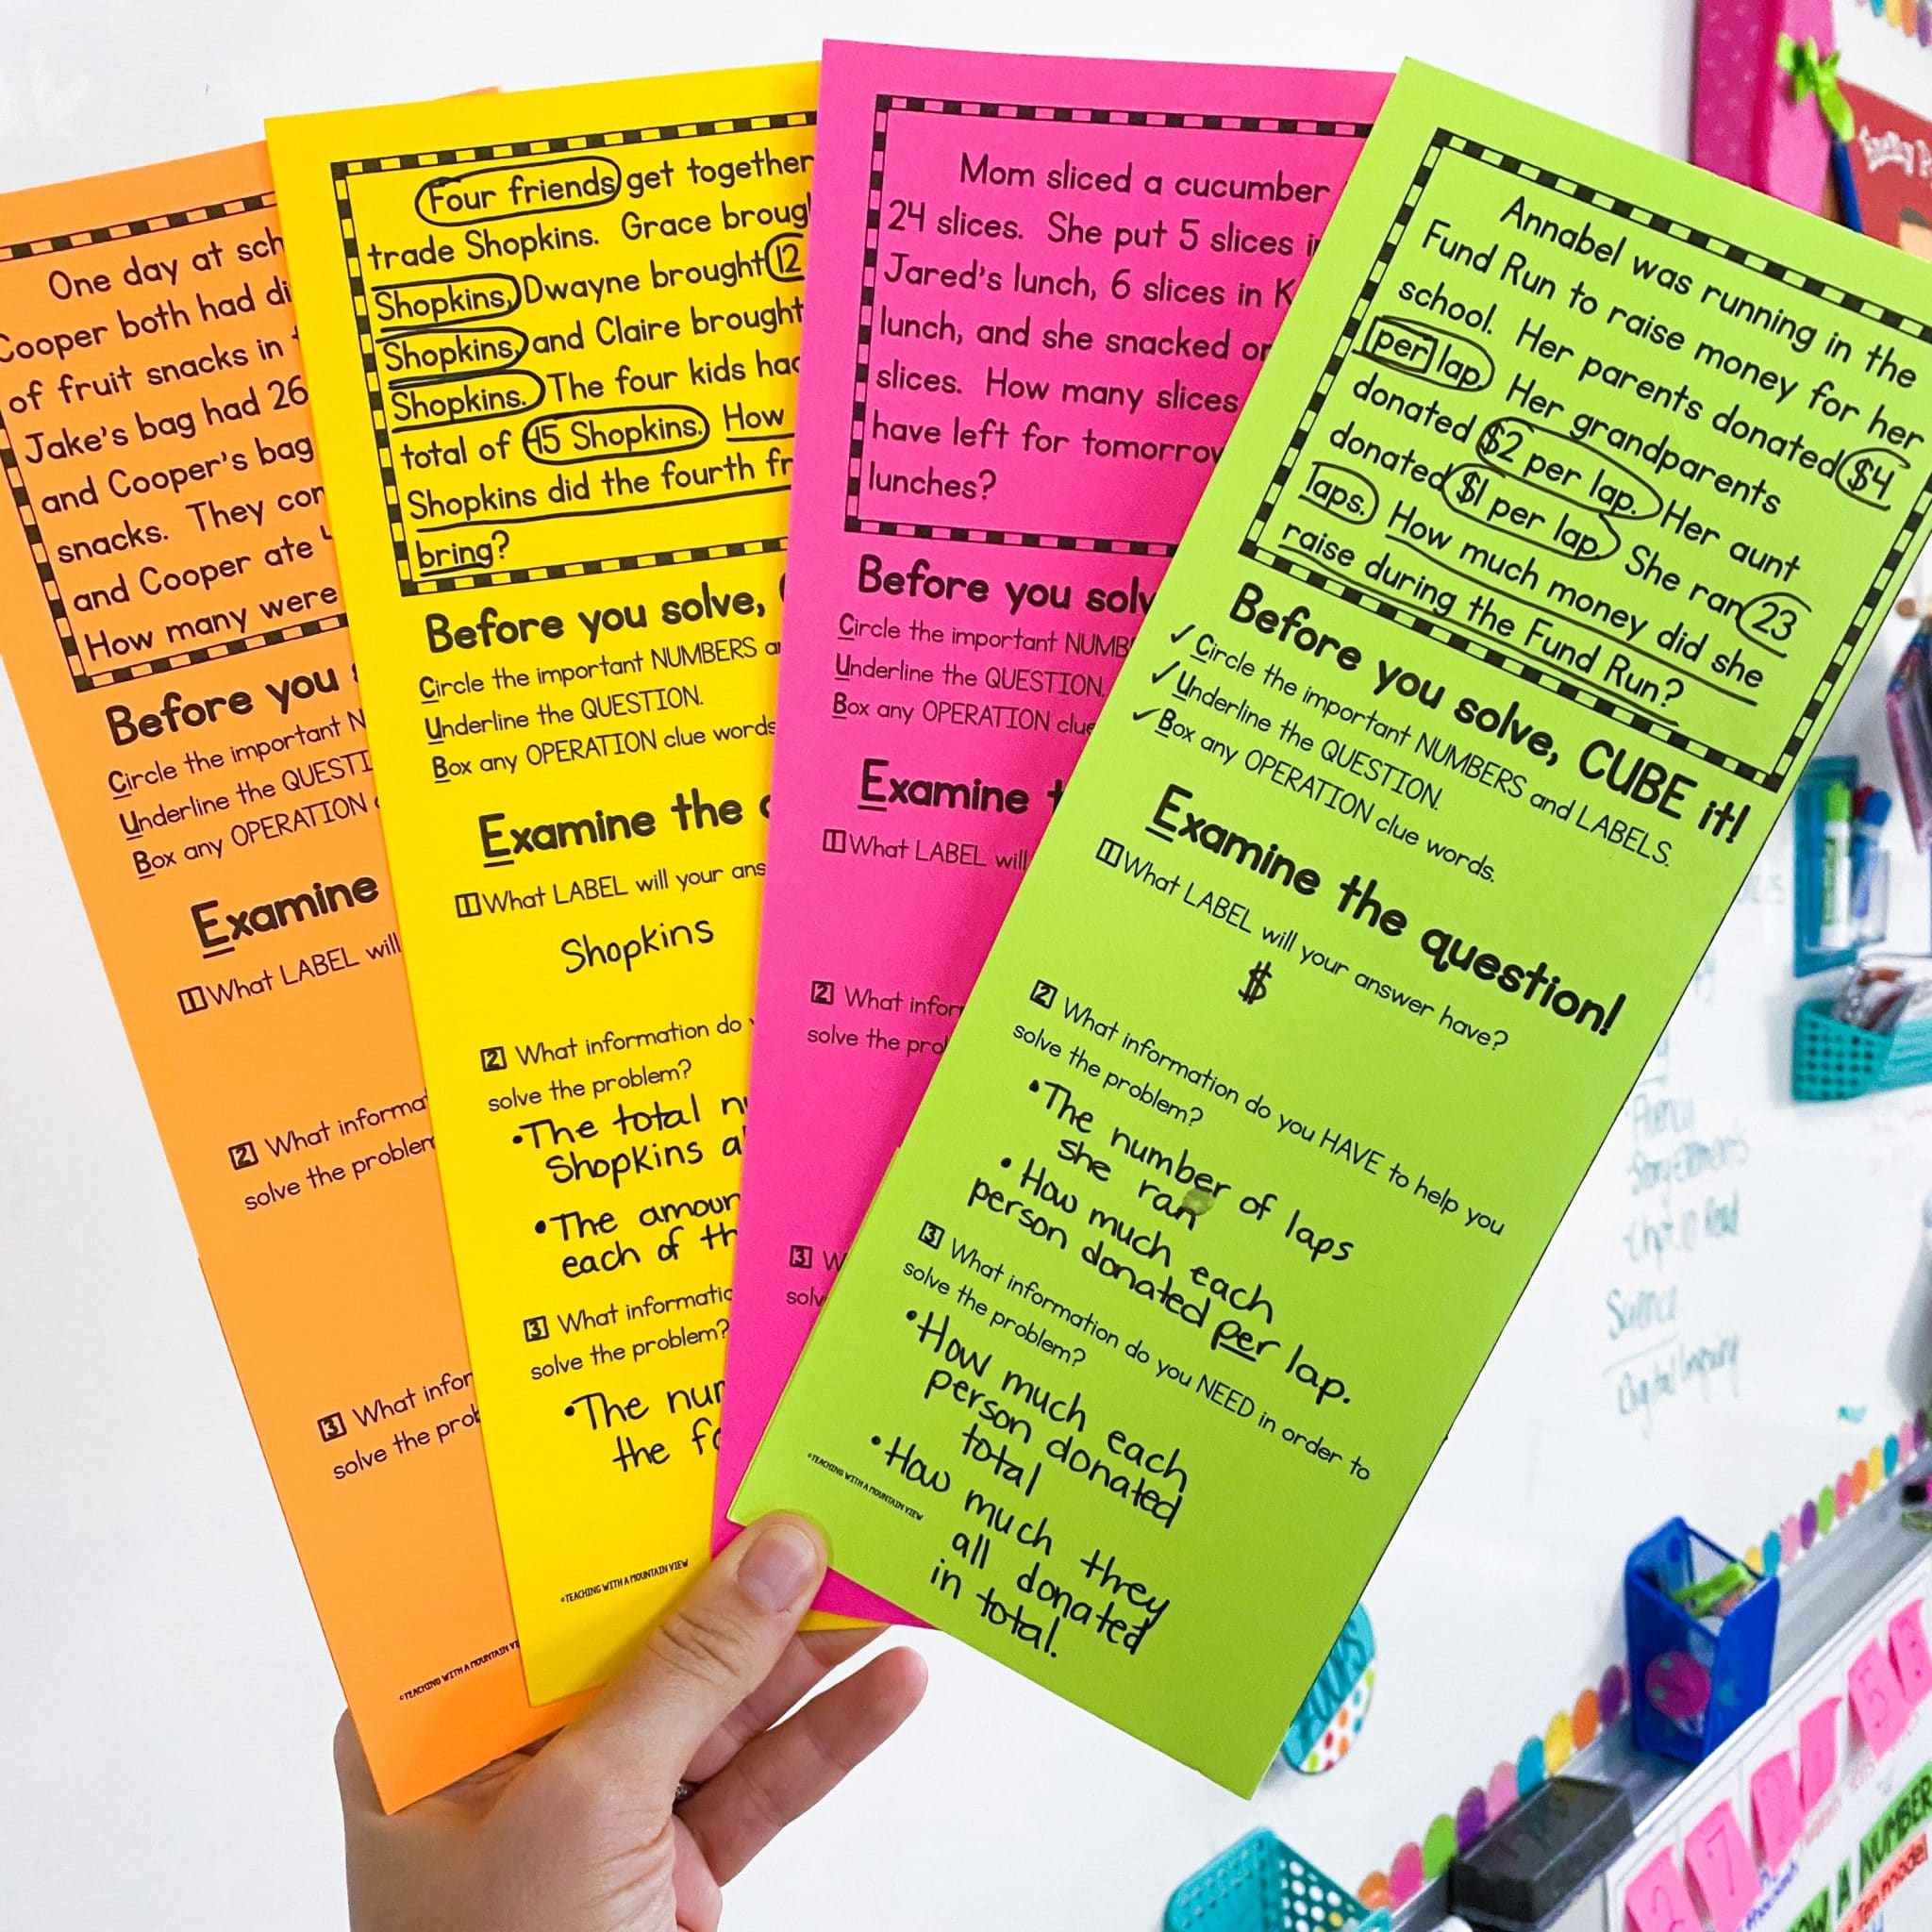 One day at
Cooper both had
of fruit snacks in
Jake's bag had 26
and Cooper's bag
snacks. They
and Cooper ate
How many were
Before you
Circle the important
Underline the
Box any OPERATION
Examine
1 What LABEL will
2 What
solve the
3 What
solve the
©TEACHING WITH A MOUNTAIN
Four friends get together
trade Shopkins. Grace
Shopkins, Dwayne brought 12
Shopkins, and Claire brought
Shopkins. The four kids
total of 45 Shopkins. How
Shopkins did the fourth
bring?
Before you solve,
Circle the important NUMBERS
Underline the QUESTION.
Box any OPERATION clue words
Examine the
1 What LABEL will your
Shopkins
2 What information do
solve the problem?
•The total
Shopkins
•The
each of
3 What
solve the problem?
•The
the
©TEACHING WITH A MOUNTAIN VIEW
Mom sliced a cucumber
24 slices. She put 5 slices
Jared's lunch, 6 slices in
lunch, and she snacked
slices. How many slices
have left for
lunches?
Before you
Circle the important
Underline the QUESTION.
Box any OPERATION
Examine
1 What LABEL will
2 What
solve the
3
Annabel was running in the
Fund Run to raise money for her
school. Her parents donated $4
per lap. Her grandparents
donated $2 per lap. Her aunt
donated $1 per lap. She ran 23
laps. How much money did she
raise during the Fund Run?
Before you solve, CUBE it!
✓ Circle the important NUMBERS and LABELS.
✓ Underline the QUESTION.
✓ Box any OPERATION clue words.
Examine the question!
1 What LABEL will your answer have?
$
2 What information do you HAVE to help you
solve the problem?
•The number of laps
she ran
•How much each
person donated per lap.
3 What information do you NEED in order to
solve the problem?
•How much each
person donated
total
•How much they
all donated
in total.
©TEACHING WITH A MOUNTAIN VIEW
Fluency
Story Elements
Science
Digital Inquiry
A NUMBER